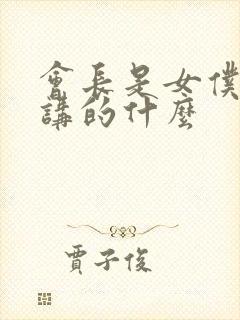 會長是女僕
講的什麼
賈子俊